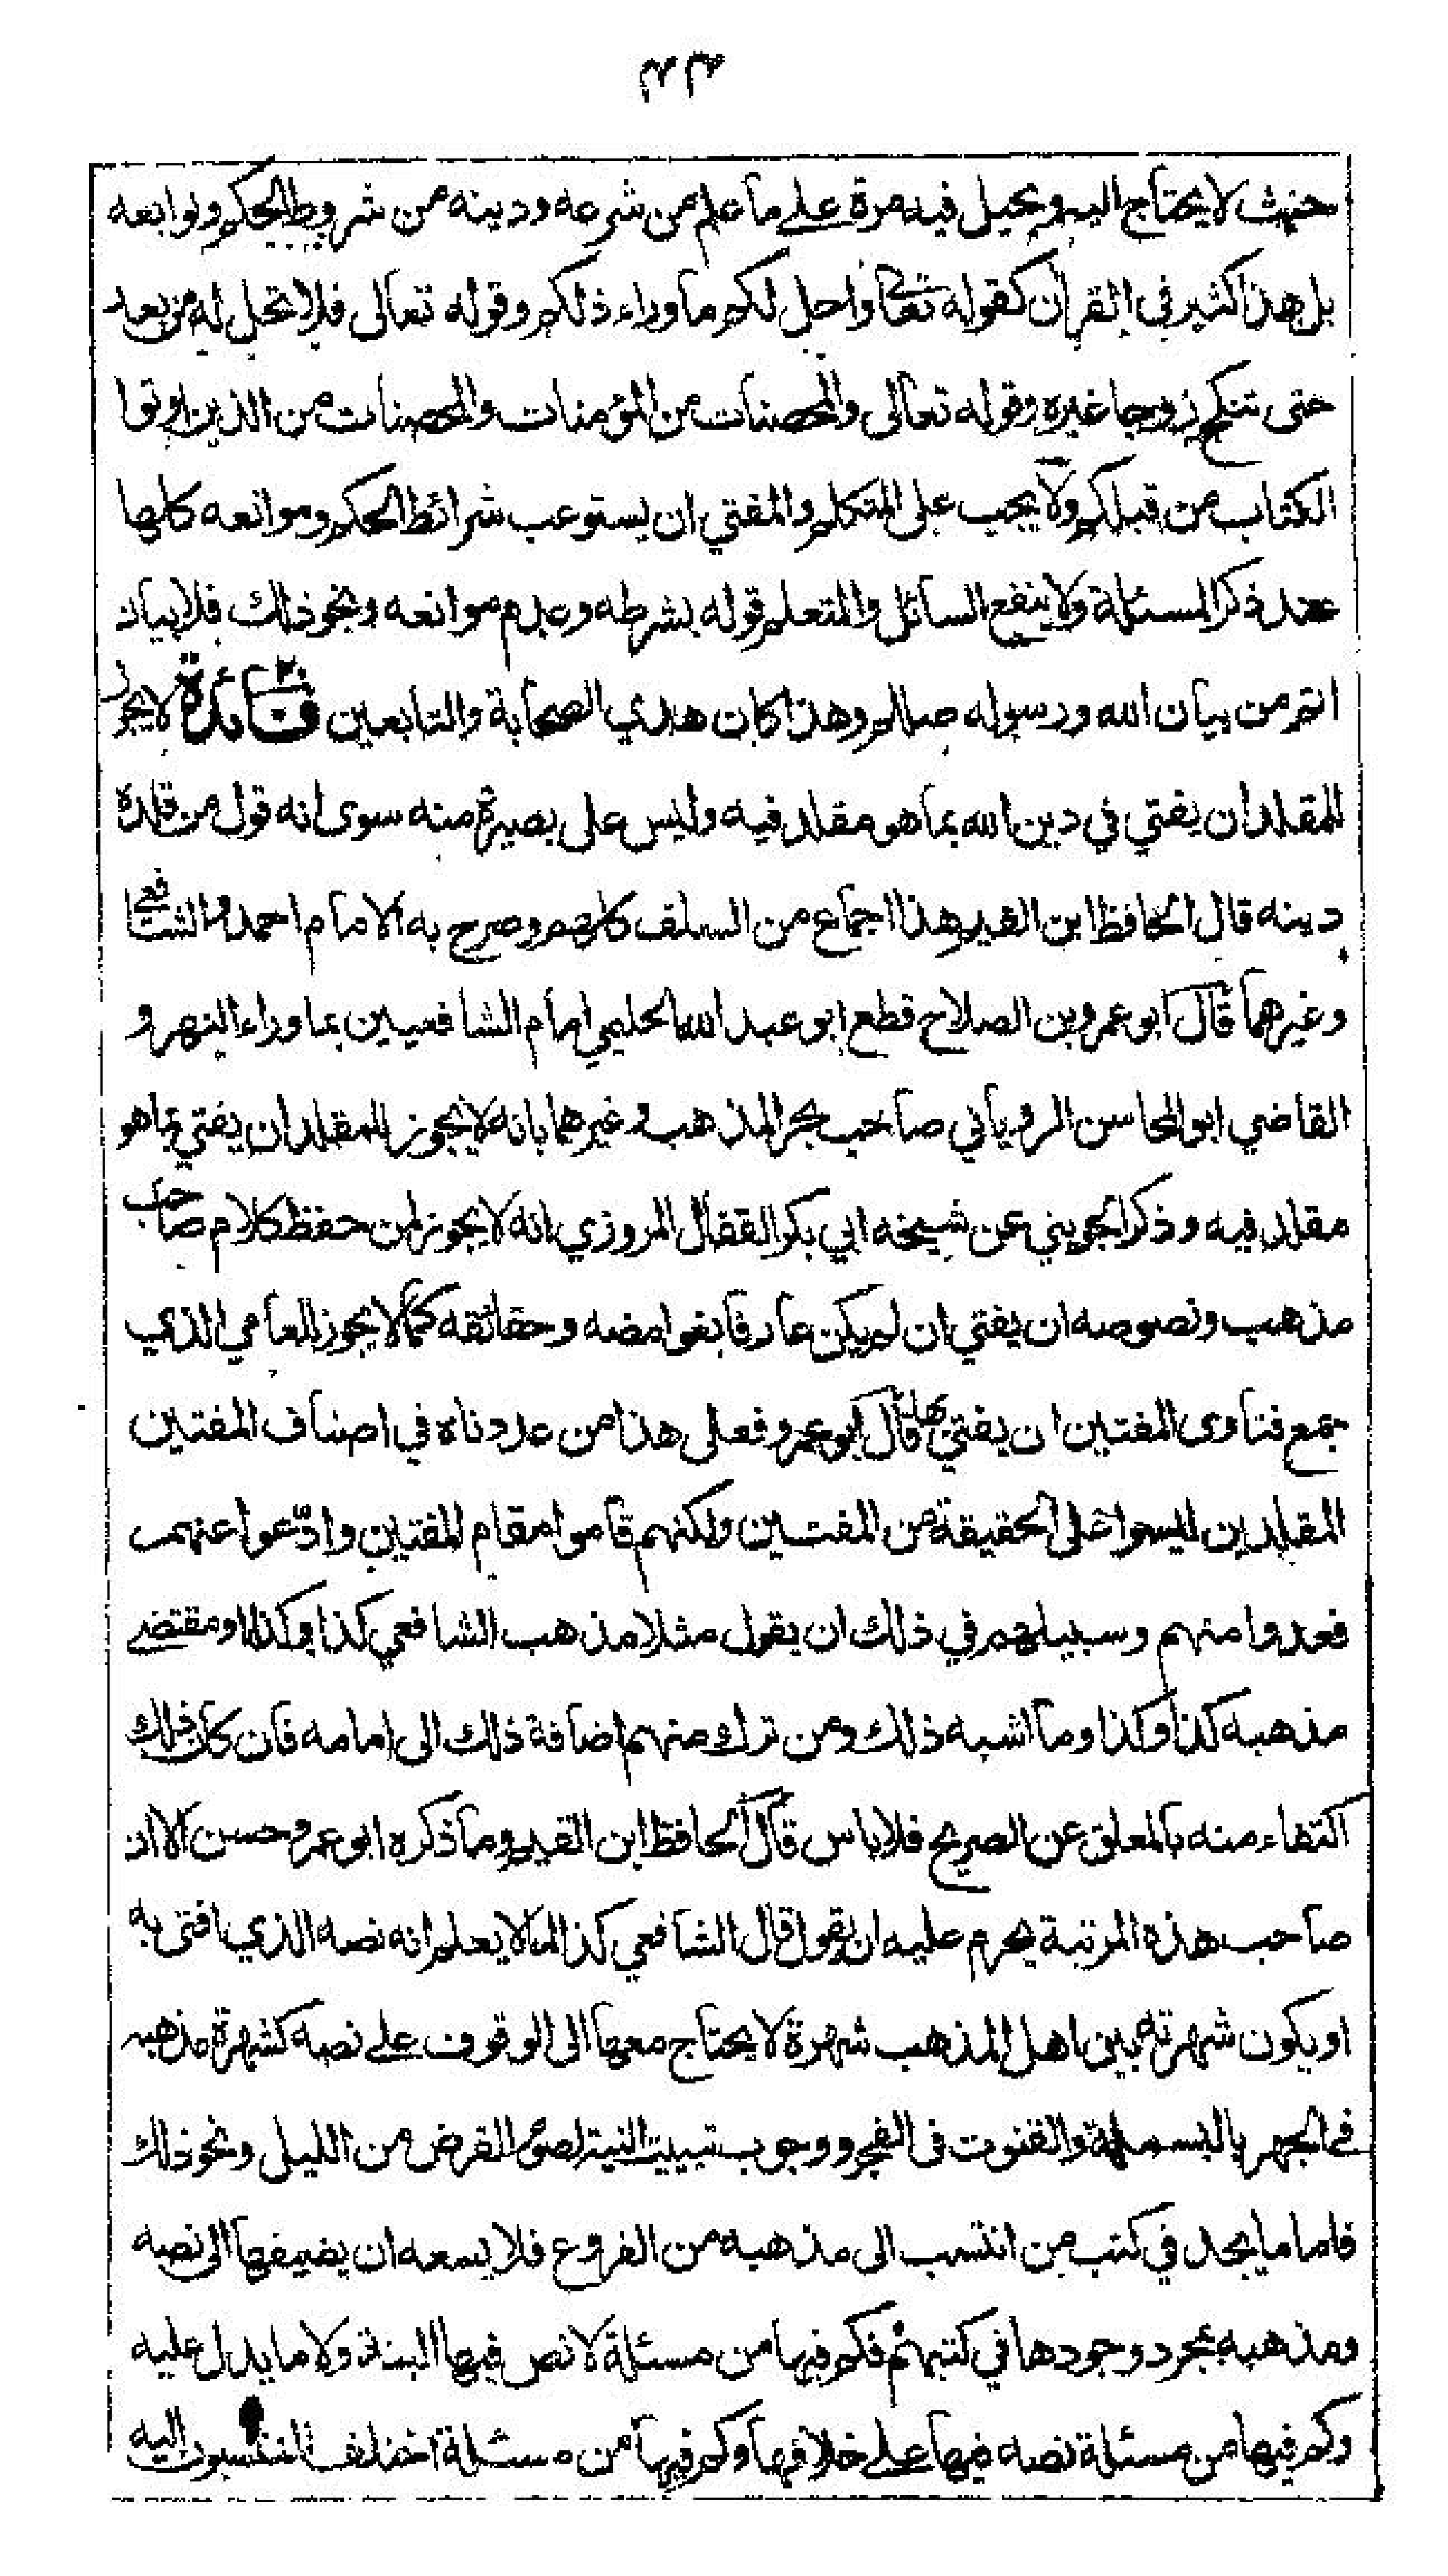 حيث لا يحتاج اليه ويحيل فيه مرة على ما علم من شرعه ودينه من شروط الحكم وتوابعه
بل هذا كثير في القرآن كقوله تعالى واحل لكم ما وراء ذلكم وقوله تعالى فلا تحل له من بعد
حتى تنكح زوجا غيره وقوله تعالى والمحصنات من المؤمنات والمحصنات من الذين اوتوا
الكتاب من قبلكم ولا يجب على المتكلم والمفتي ان يستوعب شرائط الحكم وموانعه كلها
عند ذكر المسئلة ولا ينفع السائل والمتعلم قوله بشرطه وعدم موانعه ونحو ذلك فلا بيان
اتم من بيان الله ورسوله صللم وهذا كان هدي الصحابة والتابعين فائدة لا يجوز
للمقلد ان يفتي في دين الله بما هو مقلد فيه وليس على بصيرة منه سوى انه قول من قلده
دينه قال الحافظ ابن القيم هذا اجماع من السلف كلهم وصرح به الامام احمد والشافعي
وغيرهما قال ابو عمرو بن الصلاح قطع ابو عبد الله الحليمي امام الشافعيين بما وراء النهر و
القاضي ابو المحاسن الروياني صاحب بحر المذهب وغيرهما بانه لا يجوز للمقلد ان يفتي بما هو
مقلد فيه وذكر الجويني عن شيخه ابي بكر القفال المروزي انه لا يجوز لمن حفظ كلام صاحب
مذهب ونصوصه ان يفتي ان لم يكن عارفا بغوامضه وحقائقه كما لا يجوز للعامي الذي
جمع فتاوى المفتين ان يفتي بها قال ابو عمرو فعلى هذا من عددناه في اصناف المفتين
المقلدين ليسوا على الحقيقة من المفتين ولكنهم قاموا مقام المفتين وادّعوا عنهم
فعدوا منهم وسبيلهم في ذلك ان يقول مثلا مذهب الشافعي كذا وكذا ومقتضى
مذهبه كذا وكذا وما اشبه ذلك ومن ترك منهم اضافة ذلك الى امامه فان كان ذلك
اكتفاء منه بالمعلق عن الصريح فلا باس قال الحافظ ابن القيم وما ذكره ابو عمرو حسن الا ان
صاحب هذه المرتبة يحرم عليه ان يقول قال الشافعي كذا لما لا يعلم انه نصه الذي افتى به
او يكون شهرته بين اهل المذهب شهرة لا يحتاج معها الى الوقوف على نصه كشهرة مذهبه
في الجهر بالبسملة والقنوت في الفجر ووجوب تبييت النية لصوم الفرض من الليل ونحو ذلك
فاما ما يجد في كتب من انتسب الى مذهبه من الفروع فلا يسعه ان يضيفها الى نصه
ومذهبه بمجرد وجودها في كتبهم فكم فيها من مسئلة لا نص فيها البتة ولا ما يدل عليه
وكم فيها من مسئلة نصه فيها على خلافها وكم فيها من مسئلة اختلف المنتسبون اليه